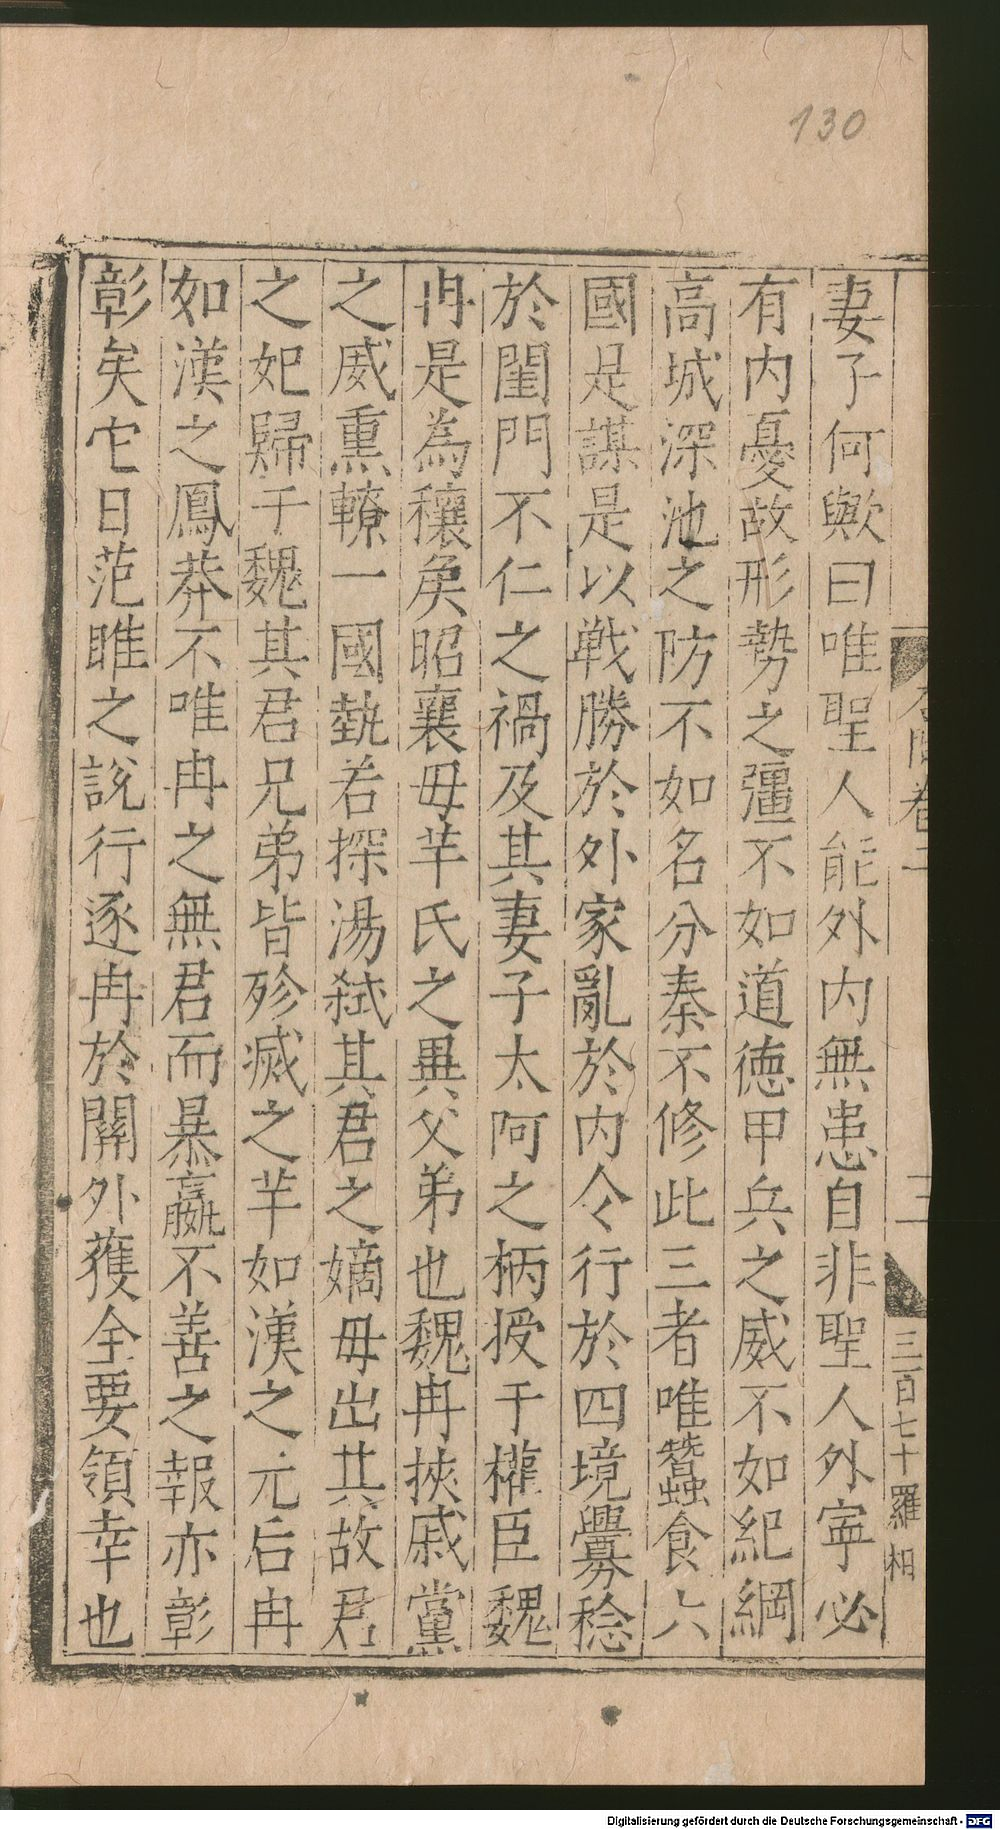 130
妻子何歟曰唯聖人能外内無患自非聖人外寧必
有内憂故形勢之彊不如道徳甲兵之威不如紀綱
高城深池之防不如名分秦不修此三者唯蠶食六
國是謀是以戰勝於外家亂於内令行於四境釁稔
於閨門不仁之禍及其妻子太阿之柄授于權臣魏
冉是為穰矦昭襄母羋氏之異父弟也魏冉挾戚黨
之威熏轑一國埶若探湯弑其君之嫡母出其故君
之妃歸于魏其君兄弟皆殄滅之羋如漢之元后冉
如漢之鳳莽不唯冉之無君而暴嬴不善之報亦彰
彰矣它日范睢之說行逐冉於關外獲全要領幸也
卷二
三百七十羅 相
Digitalisierung gefördert durch die Deutsche Forschungsgemeinschaft - DFG